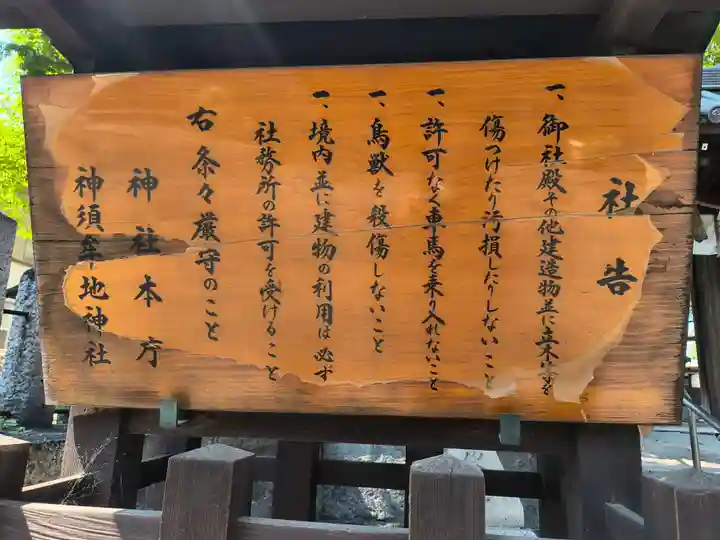 社告
一、御社殿その他建造物並に立木等を
傷つけたり汚損したりしないこと
一、許可なく車馬を乗り入れないこと
一、鳥獣を殺傷しないこと
一、境内並に建物の利用は必ず
社務所の許可を受けること
右条々厳守のこと
神社本庁
神須牟地神社